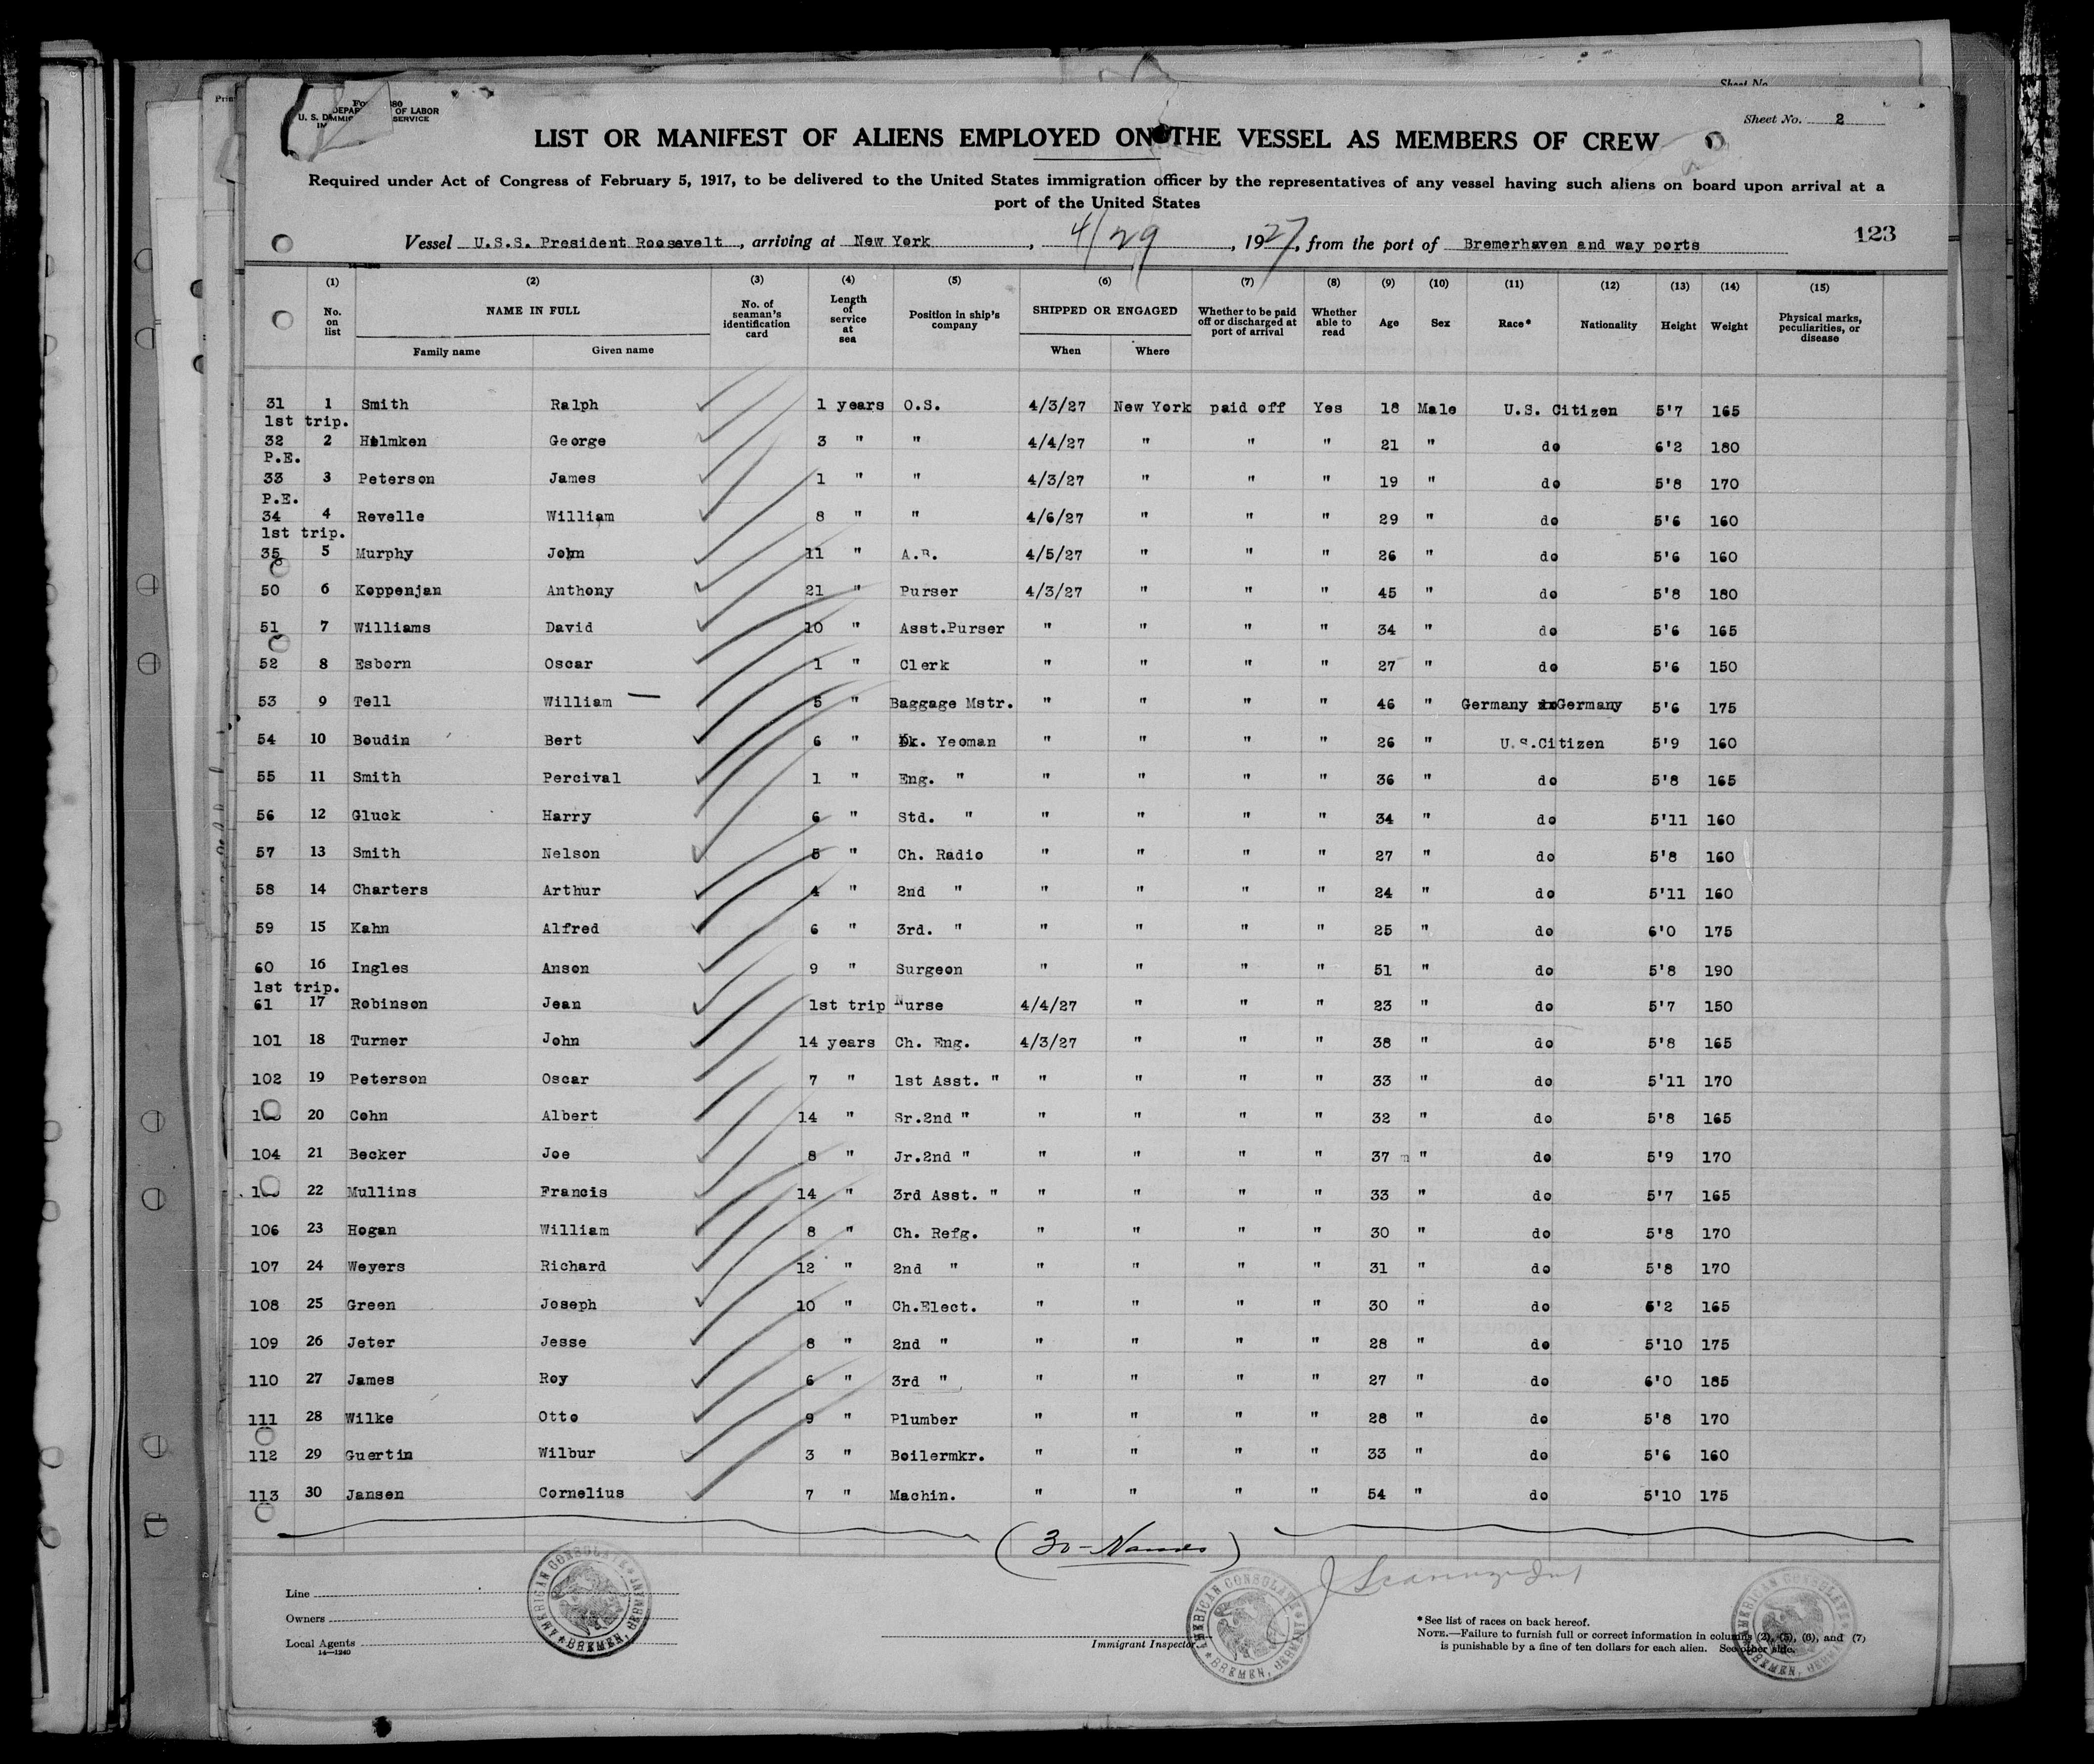 Sheet No.
U. S. D OF LABOR
SERVICE
Sheet No. 2
LIST OR MANIFEST OF ALIENS EMPLOYED ON THE VESSEL AS MEMBERS OF CREW
Required under Act of Congress of February 5, 1917, to be delivered to the United States immigration officer by the representatives of any vessel having such aliens on board upon arrival at a
port of the United States
Vessel U.S.S. President Roosevelt, arriving at New York, 4/29, 1927, from the port of Bremerhaven and way ports 123
(1) (2) (3) (4) (5) (6) (7) (8) (9) (10) (11) (12) (13) (14) (15)
No. on list NAME IN FULL No. of seaman's identification card Length of service at sea Position in ship's company SHIPPED OR ENGAGED Whether to be paid off or discharged at port of arrival Whether able to read Age Sex Race* Nationality Height Weight Physical marks, peculiarities, or disease
Family name Given name When Where
31 1 Smith Ralph 1 years O.S. 4/3/27 New York paid off Yes 18 Male U.S. Citizen 5'7 165
1st trip.
32 2 Helmken George 3 " " 4/4/27 " " " 21 " do 6'2 180
P.E.
33 3 Peterson James 1 " " 4/3/27 " " " 19 " do 5'8 170
P.E.
34 4 Revelle William 8 " " 4/6/27 " " " 29 " do 5'6 160
1st trip.
35 5 Murphy John 11 " A.B. 4/5/27 " " " 26 " do 5'6 160
50 6 Koppenjan Anthony 21 " Purser 4/3/27 " " " 45 " do 5'8 180
51 7 Williams David 10 " Asst.Purser " " " " 34 " do 5'6 165
52 8 Esborn Oscar 1 " Clerk " " " " 27 " do 5'6 150
53 9 Tell William — 5 " Baggage Mstr. " " " " 46 " Germany Germany 5'6 175
54 10 Boudin Bert 6 " Dk. Yeoman " " " " 26 " U.S.Citizen 5'9 160
55 11 Smith Percival 1 " Eng. " " " " " 36 " do 5'8 165
56 12 Gluck Harry 6 " Std. " " " " " 34 " do 5'11 160
57 13 Smith Nelson 5 " Ch. Radio " " " " 27 " do 5'8 160
58 14 Charters Arthur 4 " 2nd " " " " " 24 " do 5'11 160
59 15 Kahn Alfred 6 " 3rd. " " " " " 25 " do 6'0 175
60 16 Ingles Anson 9 " Surgeon " " " " 51 " do 5'8 190
1st trip.
61 17 Robinson Jean 1st trip Nurse 4/4/27 " " " 23 " do 5'7 150
101 18 Turner John 14 years Ch. Eng. 4/3/27 " " " 38 " do 5'8 165
102 19 Peterson Oscar 7 " 1st Asst. " " " " " 33 " do 5'11 170
20 Cohn Albert 14 " Sr.2nd " " " " " 32 " do 5'8 165
104 21 Becker Joe 8 " Jr.2nd " " " " " 37 " do 5'9 170
22 Mullins Francis 14 " 3rd Asst. " " " " " 33 " do 5'7 165
106 23 Hogan William 8 " Ch. Refg. " " " " 30 " do 5'8 170
107 24 Weyers Richard 12 " 2nd " " " " " 31 " do 5'8 170
108 25 Green Joseph 10 " Ch.Elect. " " " " 30 " do 6'2 165
109 26 Jeter Jesse 8 " 2nd " " " " " 28 " do 5'10 175
110 27 James Roy 6 " 3rd " " " " " 27 " do 6'0 185
111 28 Wilke Otto 9 " Plumber " " " " 28 " do 5'8 170
112 29 Guertin Wilbur 3 " Boilermkr. " " " " 33 " do 5'6 160
113 30 Jansen Cornelius 7 " Machin. " " " " 54 " do 5'10 175
(30 - Names)
Line
Owners
Local Agents
14—1240
AMERICAN CONSULATE BREMEN, GERMANY
Immigrant Inspector
AMERICAN CONSULATE BREMEN, GERMANY
*See list of races on back hereof.
NOTE.—Failure to furnish full or correct information in columns (2), (5), (6), and (7)
is punishable by a fine of ten dollars for each alien. See other side.
AMERICAN CONSULATE BREMEN, GERMANY